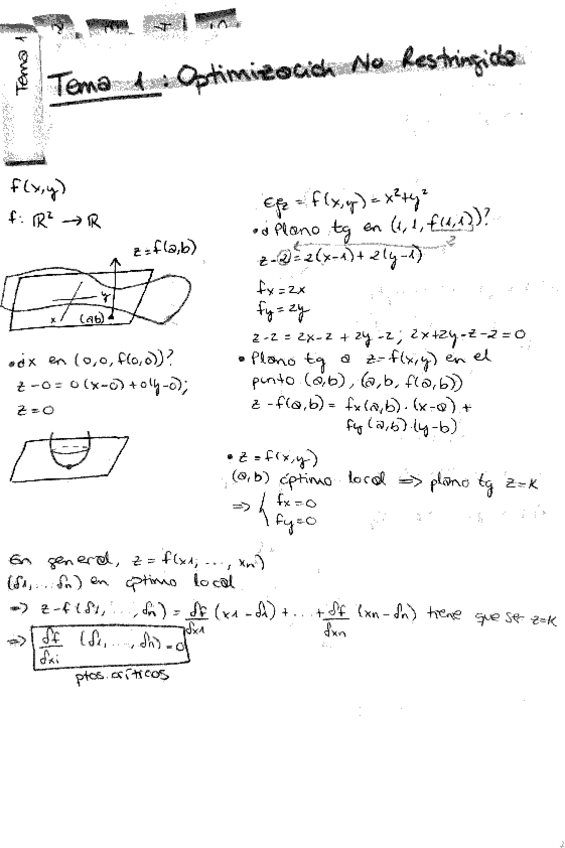 Tema 1
Tema 1 : Optimización No Restringida
f(x,y)
f: ℝ² → ℝ
z=f(a,b)
y
x
(a,b)
•¿x en (0,0,f(0,0))?
z-0=0(x-0)+0(y-0);
z=0
Ej₂ = f(x,y) = x²+y²
•¿Plano tg en (1,1,f(1,1))?
2
z-2=2(x-1)+2(y-1)
fx=2x
fy=2y
z-2=2x-2+2y-2; 2x+2y-z-2=0
• Plano tg a z=f(x,y) en el
punto (a,b), (a,b,f(a,b))
z-f(a,b)= fx(a,b)·(x-a)+
fy(a,b)·(y-b)
• z=f(x,y)
(a,b) óptimo local ⇒ plano tg z=K
⇒ { fx=0
fy=0
En general, z=f(x1, ..., xn)
(δ1,...δn) en óptimo local
⇒ z-f(δ1,...,δn)= δf/δx1 (x1-δ1)+...+ δf/δxn (xn-δn) tiene que ser z=K
⇒ δf/δxi (δ1,...,δn)=0
ptos.críticos